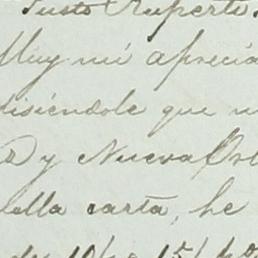 Justo Ruperto
Muy mi aprecia
disiéndole que
y Nueva Orl
ella carta, he